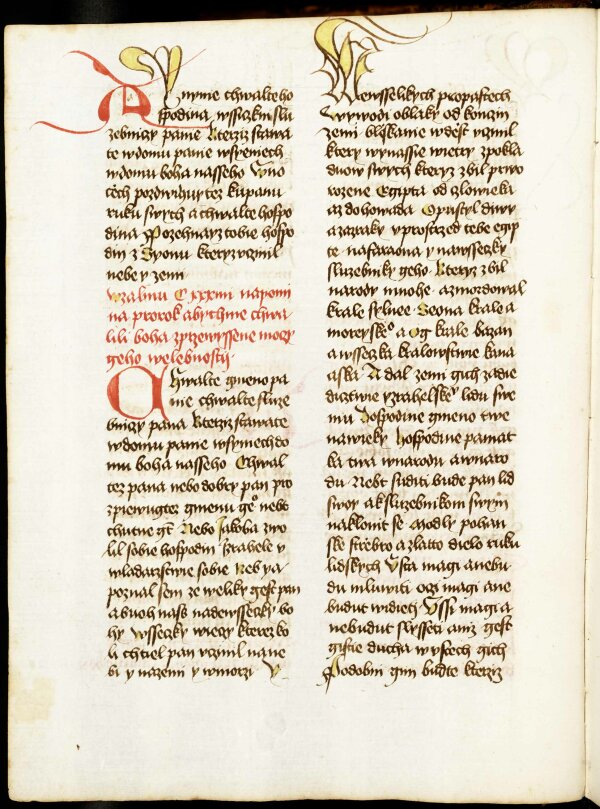 A Nynie chwalteho
spodina wssiczkni slu
zebniczy panie kterziz stawa
te wdomu panie wsyeniech
wdomu boha nasseho Wno
cech pozdwihuytez kupanu
ruku swych a chwalte hospo
dina Pozehnay tobie hospo
din z Syonu kteryz vczinil
nebe y zemi
Wzalmu Cxxxiiii napomi
na prorok abychme chwa
lili boha zprzewyssene moczy
geho welebnostij
Chwalte gmeno pa
nie chwalte sluze
bniczy pana kterziz stawate
wdomu panie wsyniech do
mu boha nasseho Chwal
tez pana nebo dobry pan pro
zpiewugtez gmenu geo nebt
chutne gt Nebo Jakoba zwo
lil sobie hospodin Izrahele v
wladarzstwie sobie Neb ya
poznal sem ze weliky gest pan
a buoh nass nadewsseczky bo
hy Wsseczky wieczy kterez ko
li chtiel pan vczinil na ne
bi y nazemi y wmorzi Y
Wewsselikych propastech
Wywodi oblaky od konczin
zemi blyskanie wdest vczinil
ktery wynassie wietry z pokla
duow swych kteryz zbil prwo
rozene Egipta od czlowieka
az do howada Opustyl diwy
a zazraky v prostred tebe egip
te na faraona y nawsseczky
sluzebniky geho Kteryz zbil
narody mnohe a zmordowal
krale sylnee Seona krale a
moreyskeo a Og krale bazan
a wsseczka kralowstwie kana
aska A dal zemi gich za die
dicztwie yzrahelskeo lidu swe
mu Hospodine gmeno twe
nawieky hospodine pamat
ka twa wnarodu a wnaro
du Nebt suditi bude pan lid
swoy a k sluzebnikom swym
naklonit se Modly pohan
ske strzebro a zlatto dielo ruku
lidskych Vsta magi a nebu
du mluwiti oczi magi a ne
budut widieti Vssi magi a
nebudut slysseti aniz gest
gistie ducha w vstech gich
Podobni gim budte kterziz